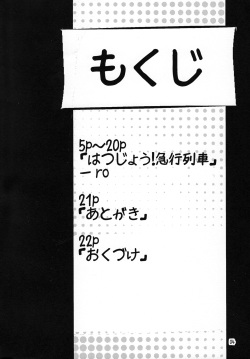 もくじ
5p～20p
『はつじょう!急行列車』
－ro
21p
『あとがき』
22p
『おくづけ』